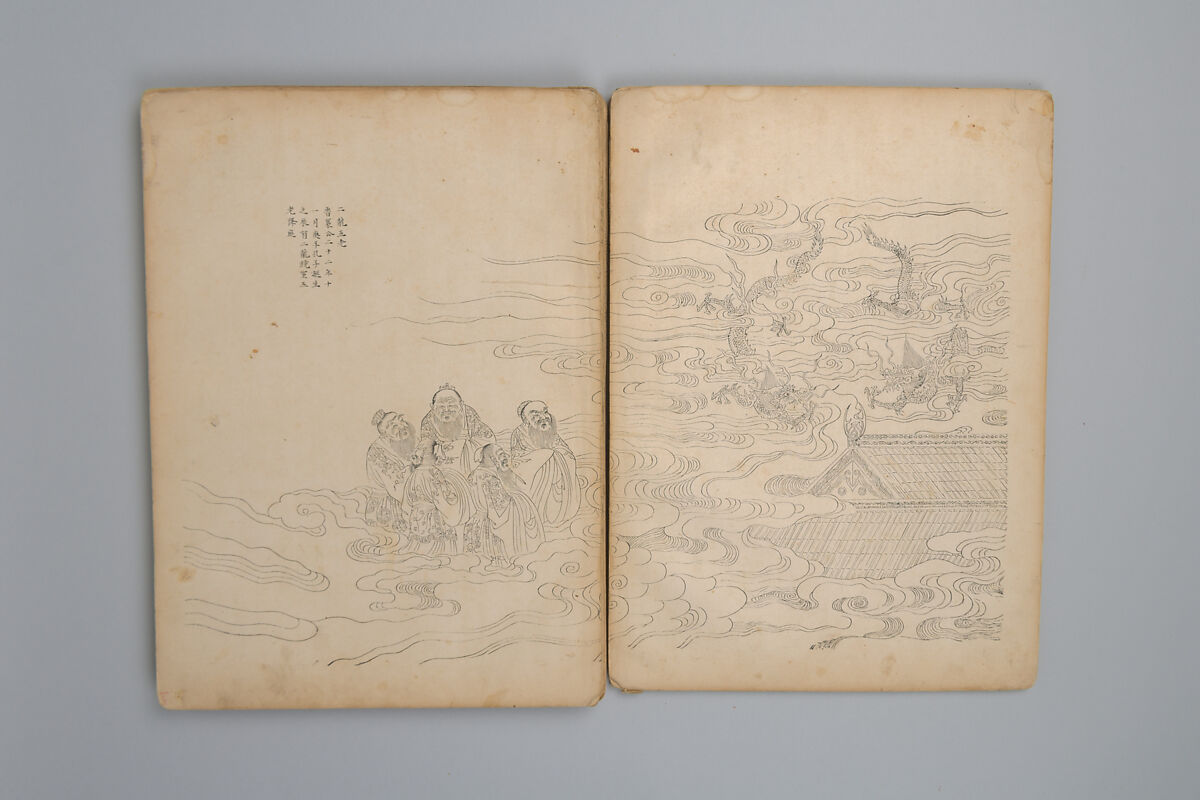 二龍五老
魯襄公二十二年十
一月庚子孔子誕生
之辰有二龍繞室五
老降庭